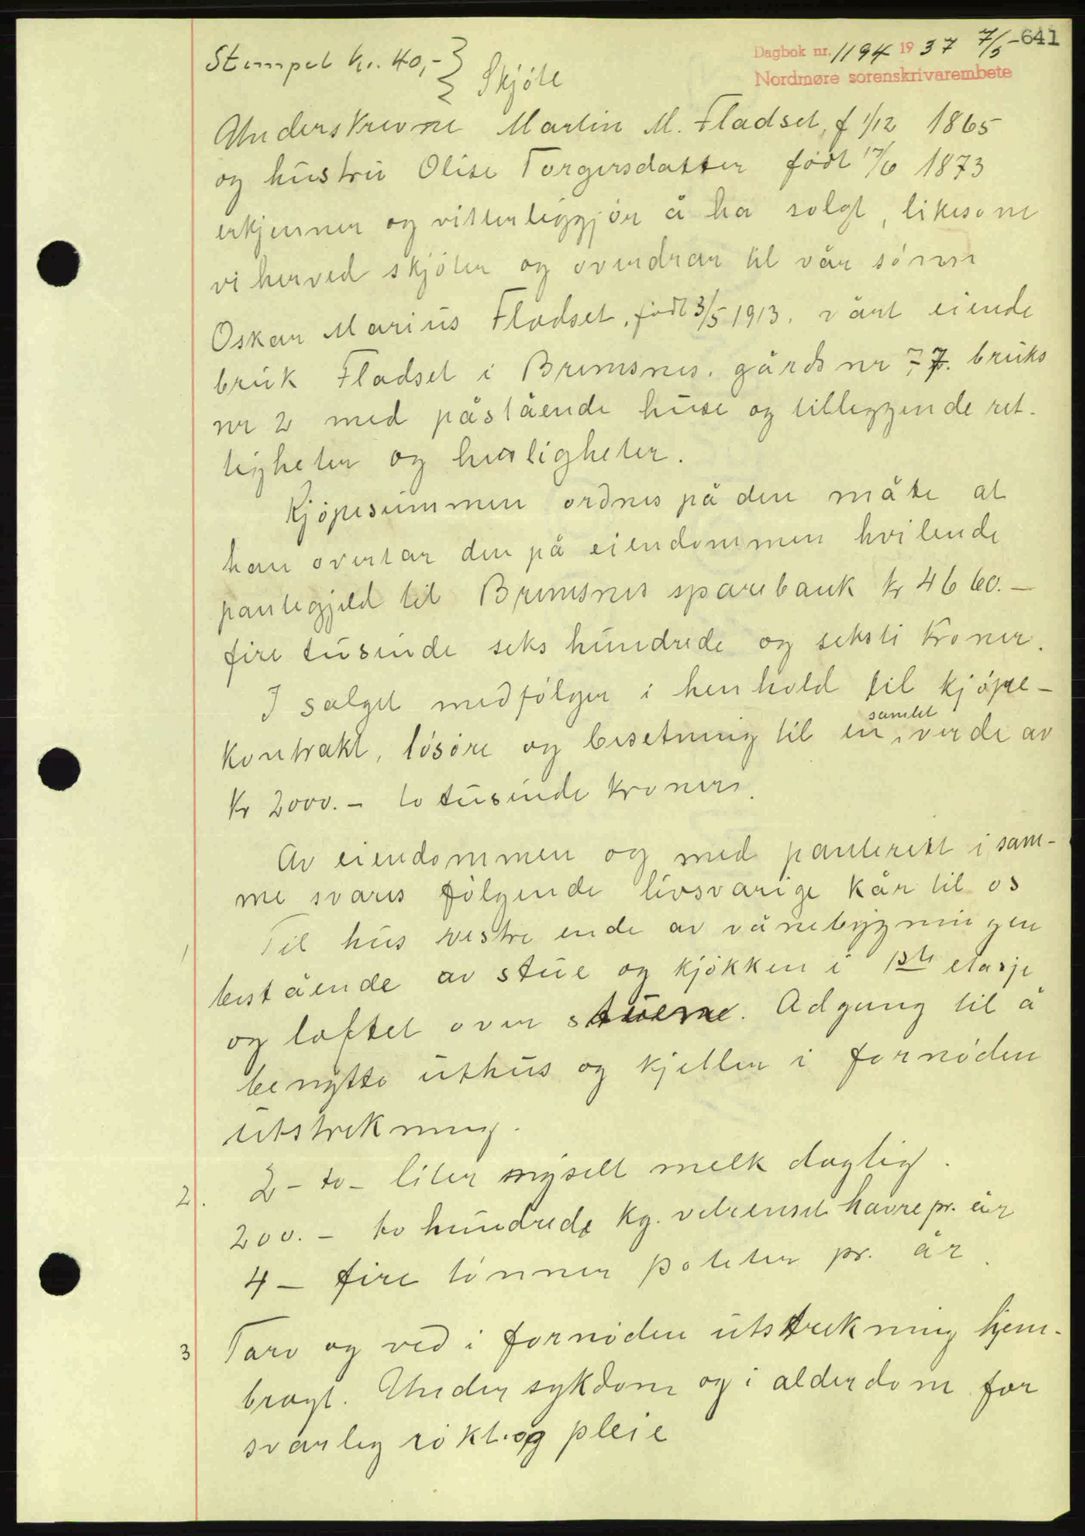 641
Dagbok nr. 1194 1937 7/5
Nordmøre sorenskrivarembete
Stempel kr. 40,-
Skjöte
Underskrevne Martin M. Fladset, f 1/12 1865
og hustru Olise Torgersdatter født 17/6 1873
erkjenner og vitterliggjör å ha solgt, likesom
vi herved skjöter og overdrar til vår sönn
Oskar Marius Fladset, födt 3/5 1913. vårt eiende
bruk Fladset i Bremsnes. gårds nr 77. bruks
nr 2 med påstående huse og tilleggende ret-
tigheter og herligheter.
Kjöpesummen ordnes på den måte at
han overtar den på eiendommen hvilende
pantegjeld til Bremsnes sparebank kr 4660.—
fire tusinde seks hundrede og seksti kroner.
I salget medfölger i henhold til kjöpe-
kontrakt, lösöre og besetning til en samlet verde av
Kr 2000.- to tusinde kroner.
Av eiendommen og med panterett i sam-
me svares fölgende livsvarige kår til os
1 Til hus vestre ende av vånebygningen
bestående av stue og kjökken i 1ste etasje
og loftet over stuene. Adgang til å
benytte uthus og kjeller i fornöden
utstrekning.
2. 2 - to - liter nysilt melk daglig.
200. - to hundrede kg. velrenset havre pr. år
4 - fire tönner poteter pr. år.
3 Torv og ved i fornöden utstrekning hjem-
bragt. Under sykdom og i alderdom for
svarlig rökt og pleie